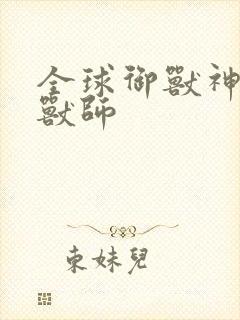 全球御獸神
獸師
東妹兒